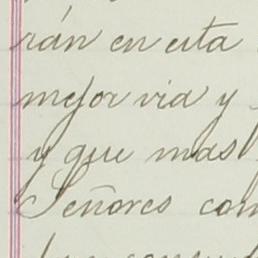 rán en esta
mejor via y
y que mas
Señores con